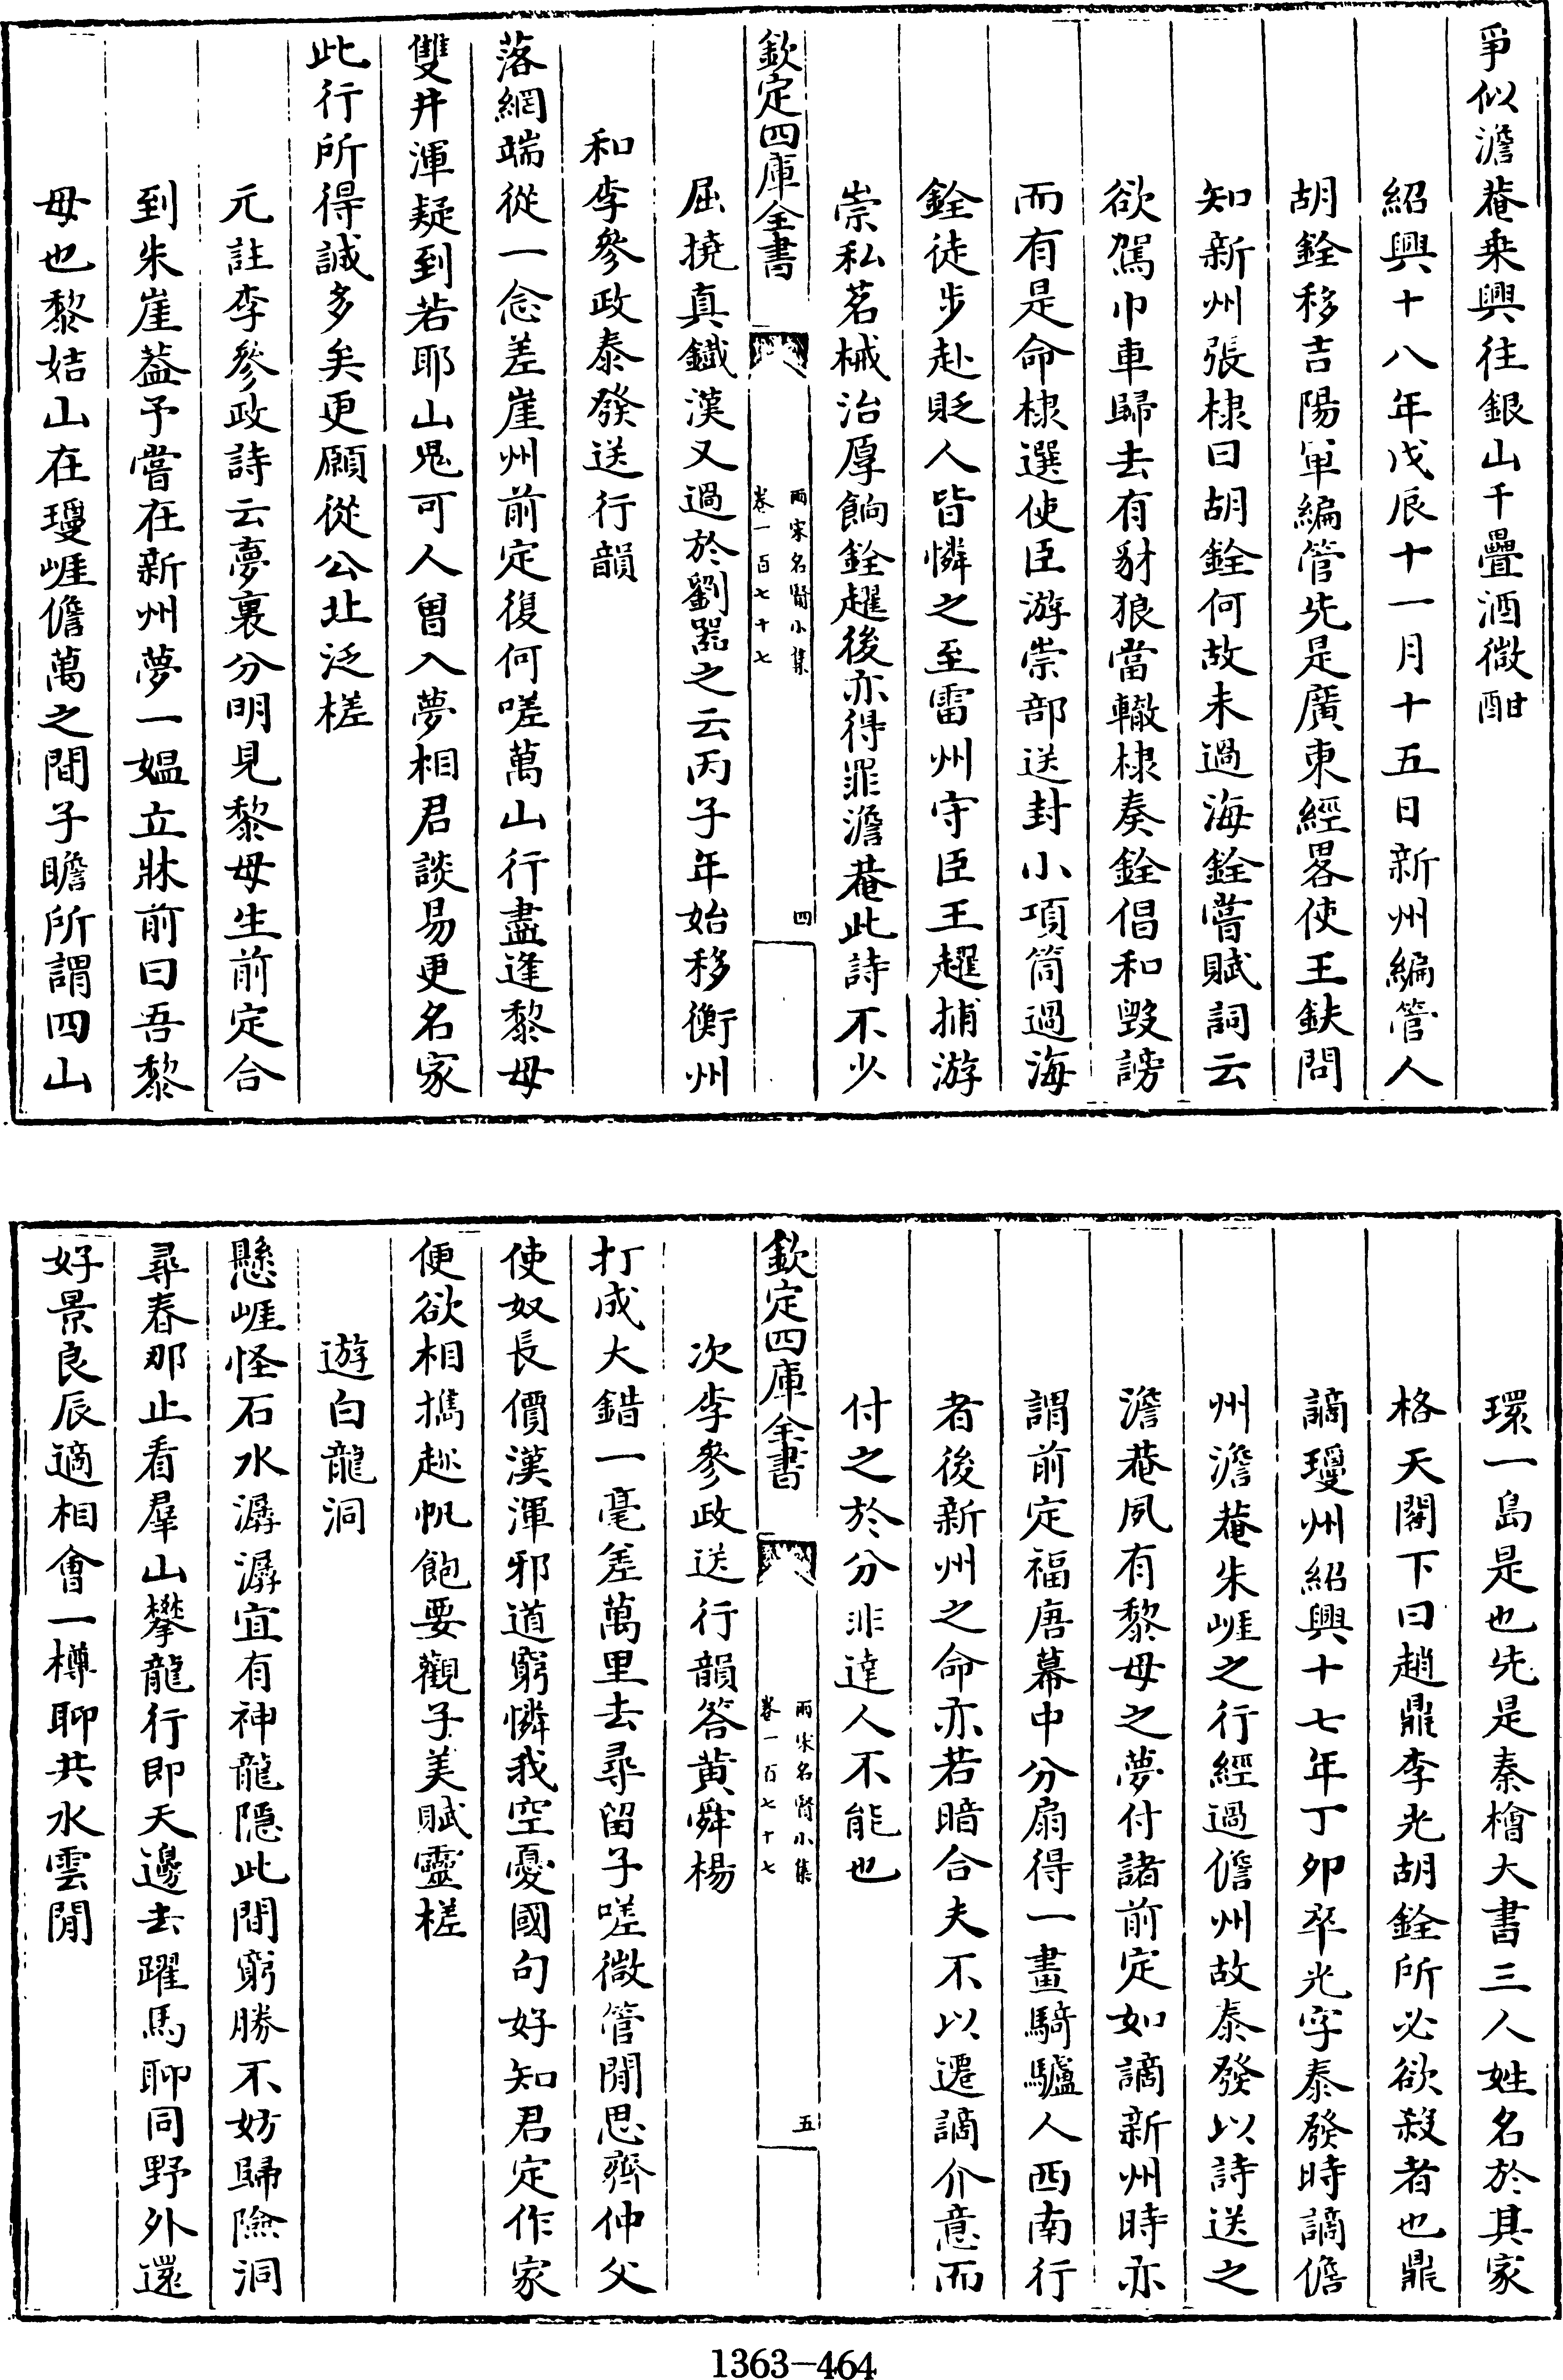 爭似澹菴乗興往銀山千疊酒微酣
紹興十八年戊辰十一月十五日新州編管人
胡銓移吉陽軍編管先是廣東經畧使王鈇問
知新州張棣曰胡銓何故未過海銓嘗賦詞云
欲駕巾車歸去有豺狼當轍棣奏銓倡和毀謗
而有是命棣選使臣游崇部送封小項筒過海
銓徒步赴貶人皆憐之至雷州守臣王趯捕游
崇私茗械治厚餉銓趯後亦得罪澹菴此詩不少
欽定四庫全書
兩宋名賢小集
卷一百七十七
四
屈撓真鐵漢又過於劉器之云丙子年始移衡州
和李參政泰發送行韻
落網端從一念差崖州前定復何嗟萬山行盡逢黎母
雙井渾疑到若耶山鬼可人曽入夢相君談易更名家
此行所得誠多矣更願從公北泛槎
元註李參政詩云夢裏分明見黎母生前定合
到朱崖葢予嘗在新州夢一媪立牀前曰吾黎
母也黎姑山在瓊崕儋萬之間子瞻所謂四山
環一島是也先是秦檜大書三人姓名於其家
格天閣下曰趙鼎李光胡銓所必欲殺者也鼎
謫瓊州紹興十七年丁卯卒光字泰發時謫儋
州澹菴朱崕之行經過儋州故泰發以詩送之
澹菴夙有黎母之夢付諸前定如謫新州時亦
謂前定福唐幕中分扇得一畫騎驢人西南行
者後新州之命亦若暗合夫不以遷謫介意而
付之於分非達人不能也
欽定四庫全書
兩宋名賢小集
卷一百七十七
五
次李參政送行韻答黄舜楊
打成大錯一毫差萬里去尋留子嗟微管閒思齊仲父
使奴長價漢渾邪道窮憐我空憂國句好知君定作家
便欲相擕趂帆飽要觀子美賦靈槎
遊白龍洞
懸崕怪石水潺潺宜有神龍隱此間窮勝不妨歸險洞
尋春那止看羣山攀龍行即天邊去躍馬聊同野外還
好景良辰適相會一樽聊共水雲閒
1363-464